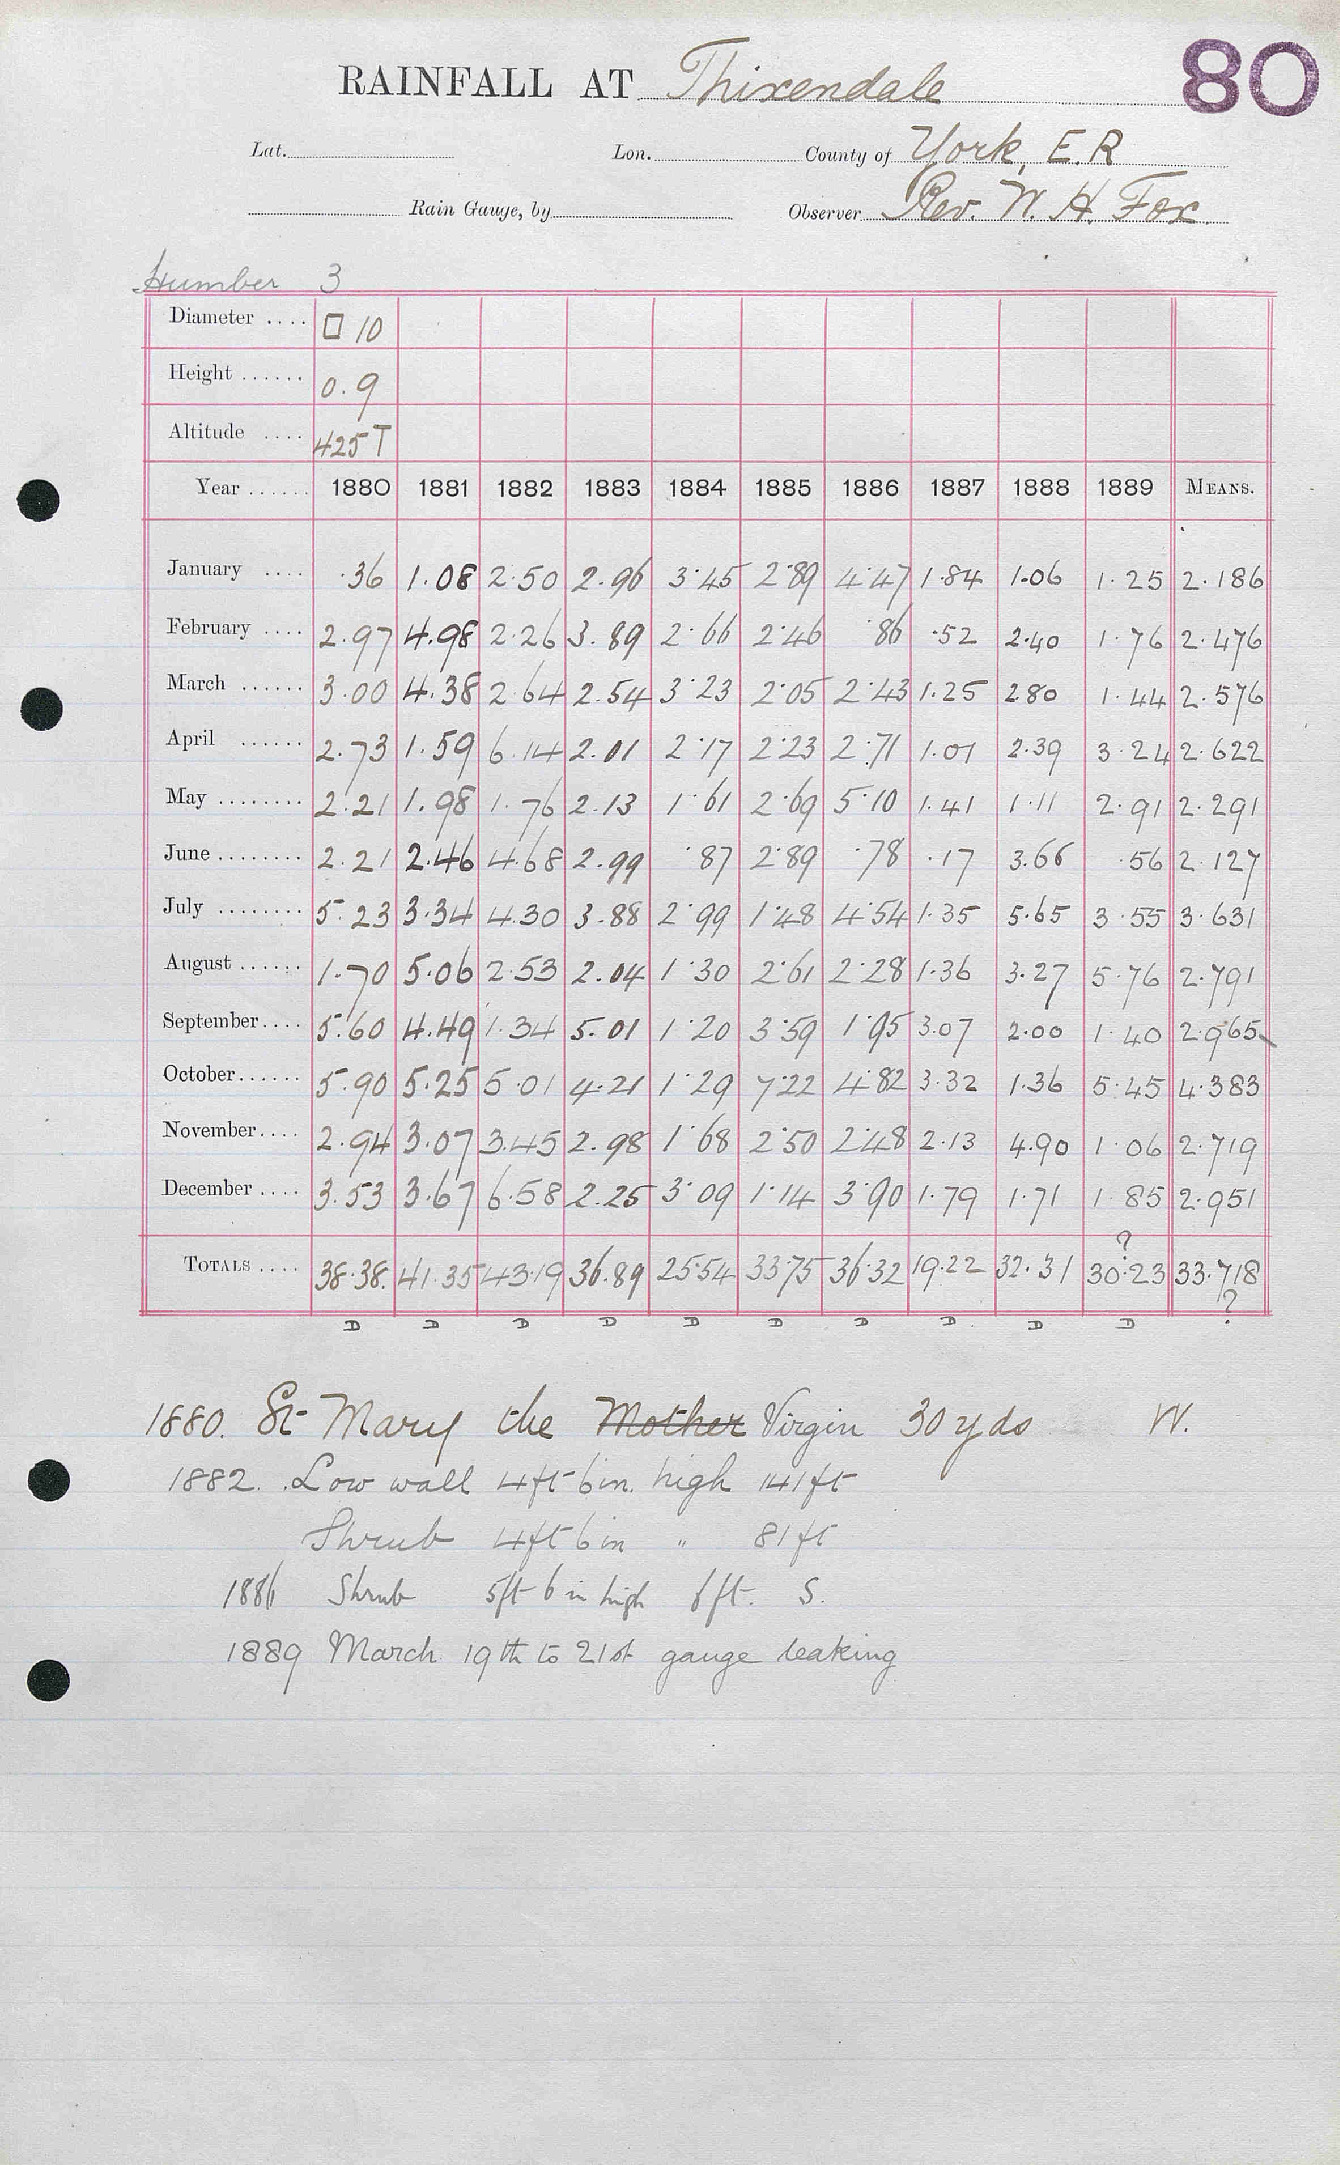 80
RAINFALL AT Thixendale
Lat. Lon. County of York, E.R
Rain Gauge, by Observer Rev. W. H. Fox.
Humber 3
Diameter .... □ 10
Height ...... 0.9
Altitude .... 425 T
Year ...... 1880 1881 1882 1883 1884 1885 1886 1887 1888 1889 MEANS.
January .... .36 1.08 2.50 2.96 3.45 2.89 4.47 1.84 1.06 1.25 2.186
February .... 2.97 4.98 2.26 3.89 2.66 2.46 .86 .52 2.40 1.76 2.476
March ...... 3.00 4.38 2.64 2.54 3.23 2.05 2.43 1.25 2.80 1.44 2.576
April ...... 2.73 1.59 6.14 2.01 2.17 2.23 2.71 1.01 2.39 3.24 2.622
May ........ 2.21 1.98 1.76 2.13 1.61 2.69 5.10 1.41 1.11 2.91 2.291
June ........ 2.21 2.46 4.68 2.99 .87 2.89 .78 .17 3.66 .56 2.127
July ........ 5.23 3.34 4.30 3.88 2.99 1.48 4.54 1.35 5.65 3.55 3.631
August ...... 1.70 5.06 2.53 2.04 1.30 2.61 2.28 1.36 3.27 5.76 2.791
September .... 5.60 4.49 1.34 5.01 1.20 3.59 1.95 3.07 2.00 1.40 2.965
October ...... 5.90 5.25 5.01 4.21 1.29 7.22 4.82 3.32 1.36 5.45 4.383
November .... 2.94 3.07 3.45 2.98 1.68 2.50 2.48 2.13 4.90 1.06 2.719
December .... 3.53 3.67 6.58 2.25 3.09 1.14 3.90 1.79 1.71 1.85 2.951
?
TOTALS .... 38.38. 41.35 43.19 36.89 25.54 33.75 36.32 19.22 32.31 30.23 33.718
?
D D D D D D D D D D
1880. St Mary the Mother Virgin 30 yds W.
1882. Low wall 4ft 6in. high 141ft
Shrub 4ft 6in " 81ft
1886 Shrub 5ft 6in high 6ft. S.
1889 March 19th to 21st gauge leaking